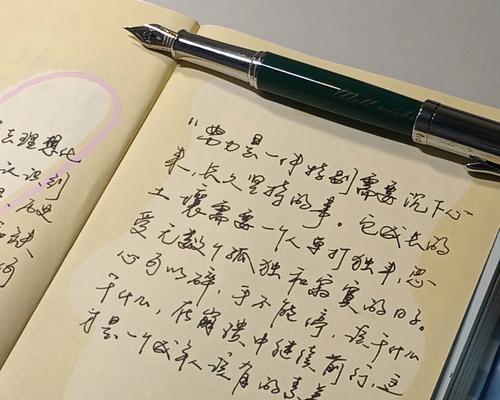 去理想化
次识到
历史
"努力是一件特别需要沉下心
来，长久坚持的事。它成长的
土壤需要一个人单打独斗，忍
受无数个孤独和寂寞的日子。
心可以碎，手不能停，该干什么
干什么，在崩溃中继续前行，这
才是一个成年人该有的素养